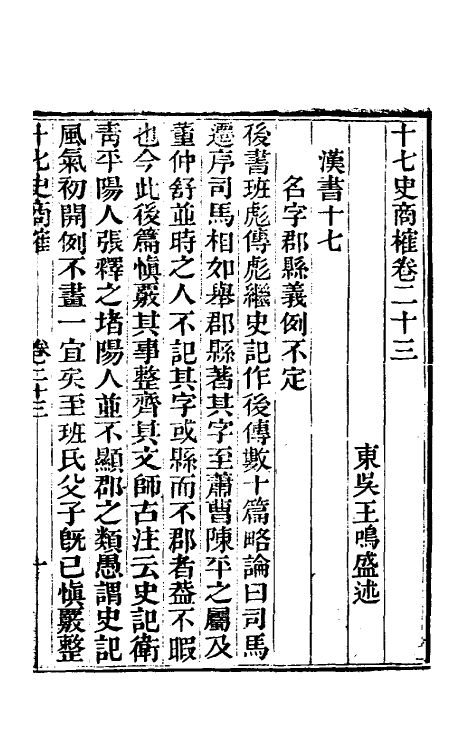 十七史商榷卷二十三
東吳王鳴盛述
漢書十七
名字郡縣義例不定
後書班彪傳彪繼史記作後傳數十篇略論曰司馬
遷序司馬相如舉郡縣著其字至蕭曹陳平之屬及
董仲舒並時之人不記其字或縣而不郡者蓋不暇
也今此後篇愼覈其事整齊其文師古注云史記衛
靑平陽人張釋之堵陽人並不顯郡之類愚謂史記
風氣初開例不畫一宜矣至班氏父子旣已愼覈整
十七史商榷
卷二十三